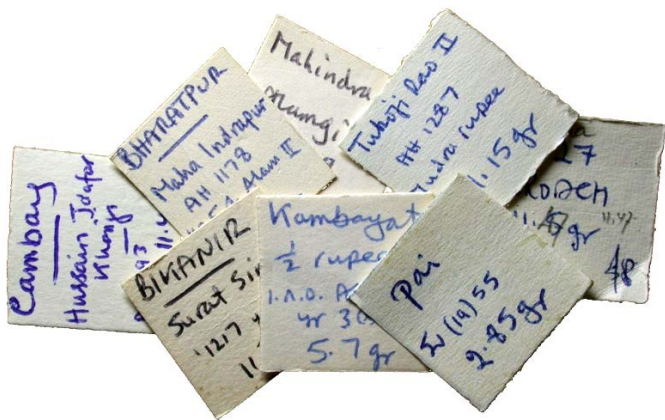 Cambay
Hussain Jdafar
Khanji
93 11.4
BHARATPUR
Maha Indrapur
AH 1178
Alam II
Mahindra
Tukoji Rao II
AH 1287
Indra rupee
1.15gr
7
gr
11.47
BIKANIR
Surat Sin
'1217
11
Kambayat
½ rupee
I.N.O.
yr 3
5.7gr
Pai
(19)55
2.85gr